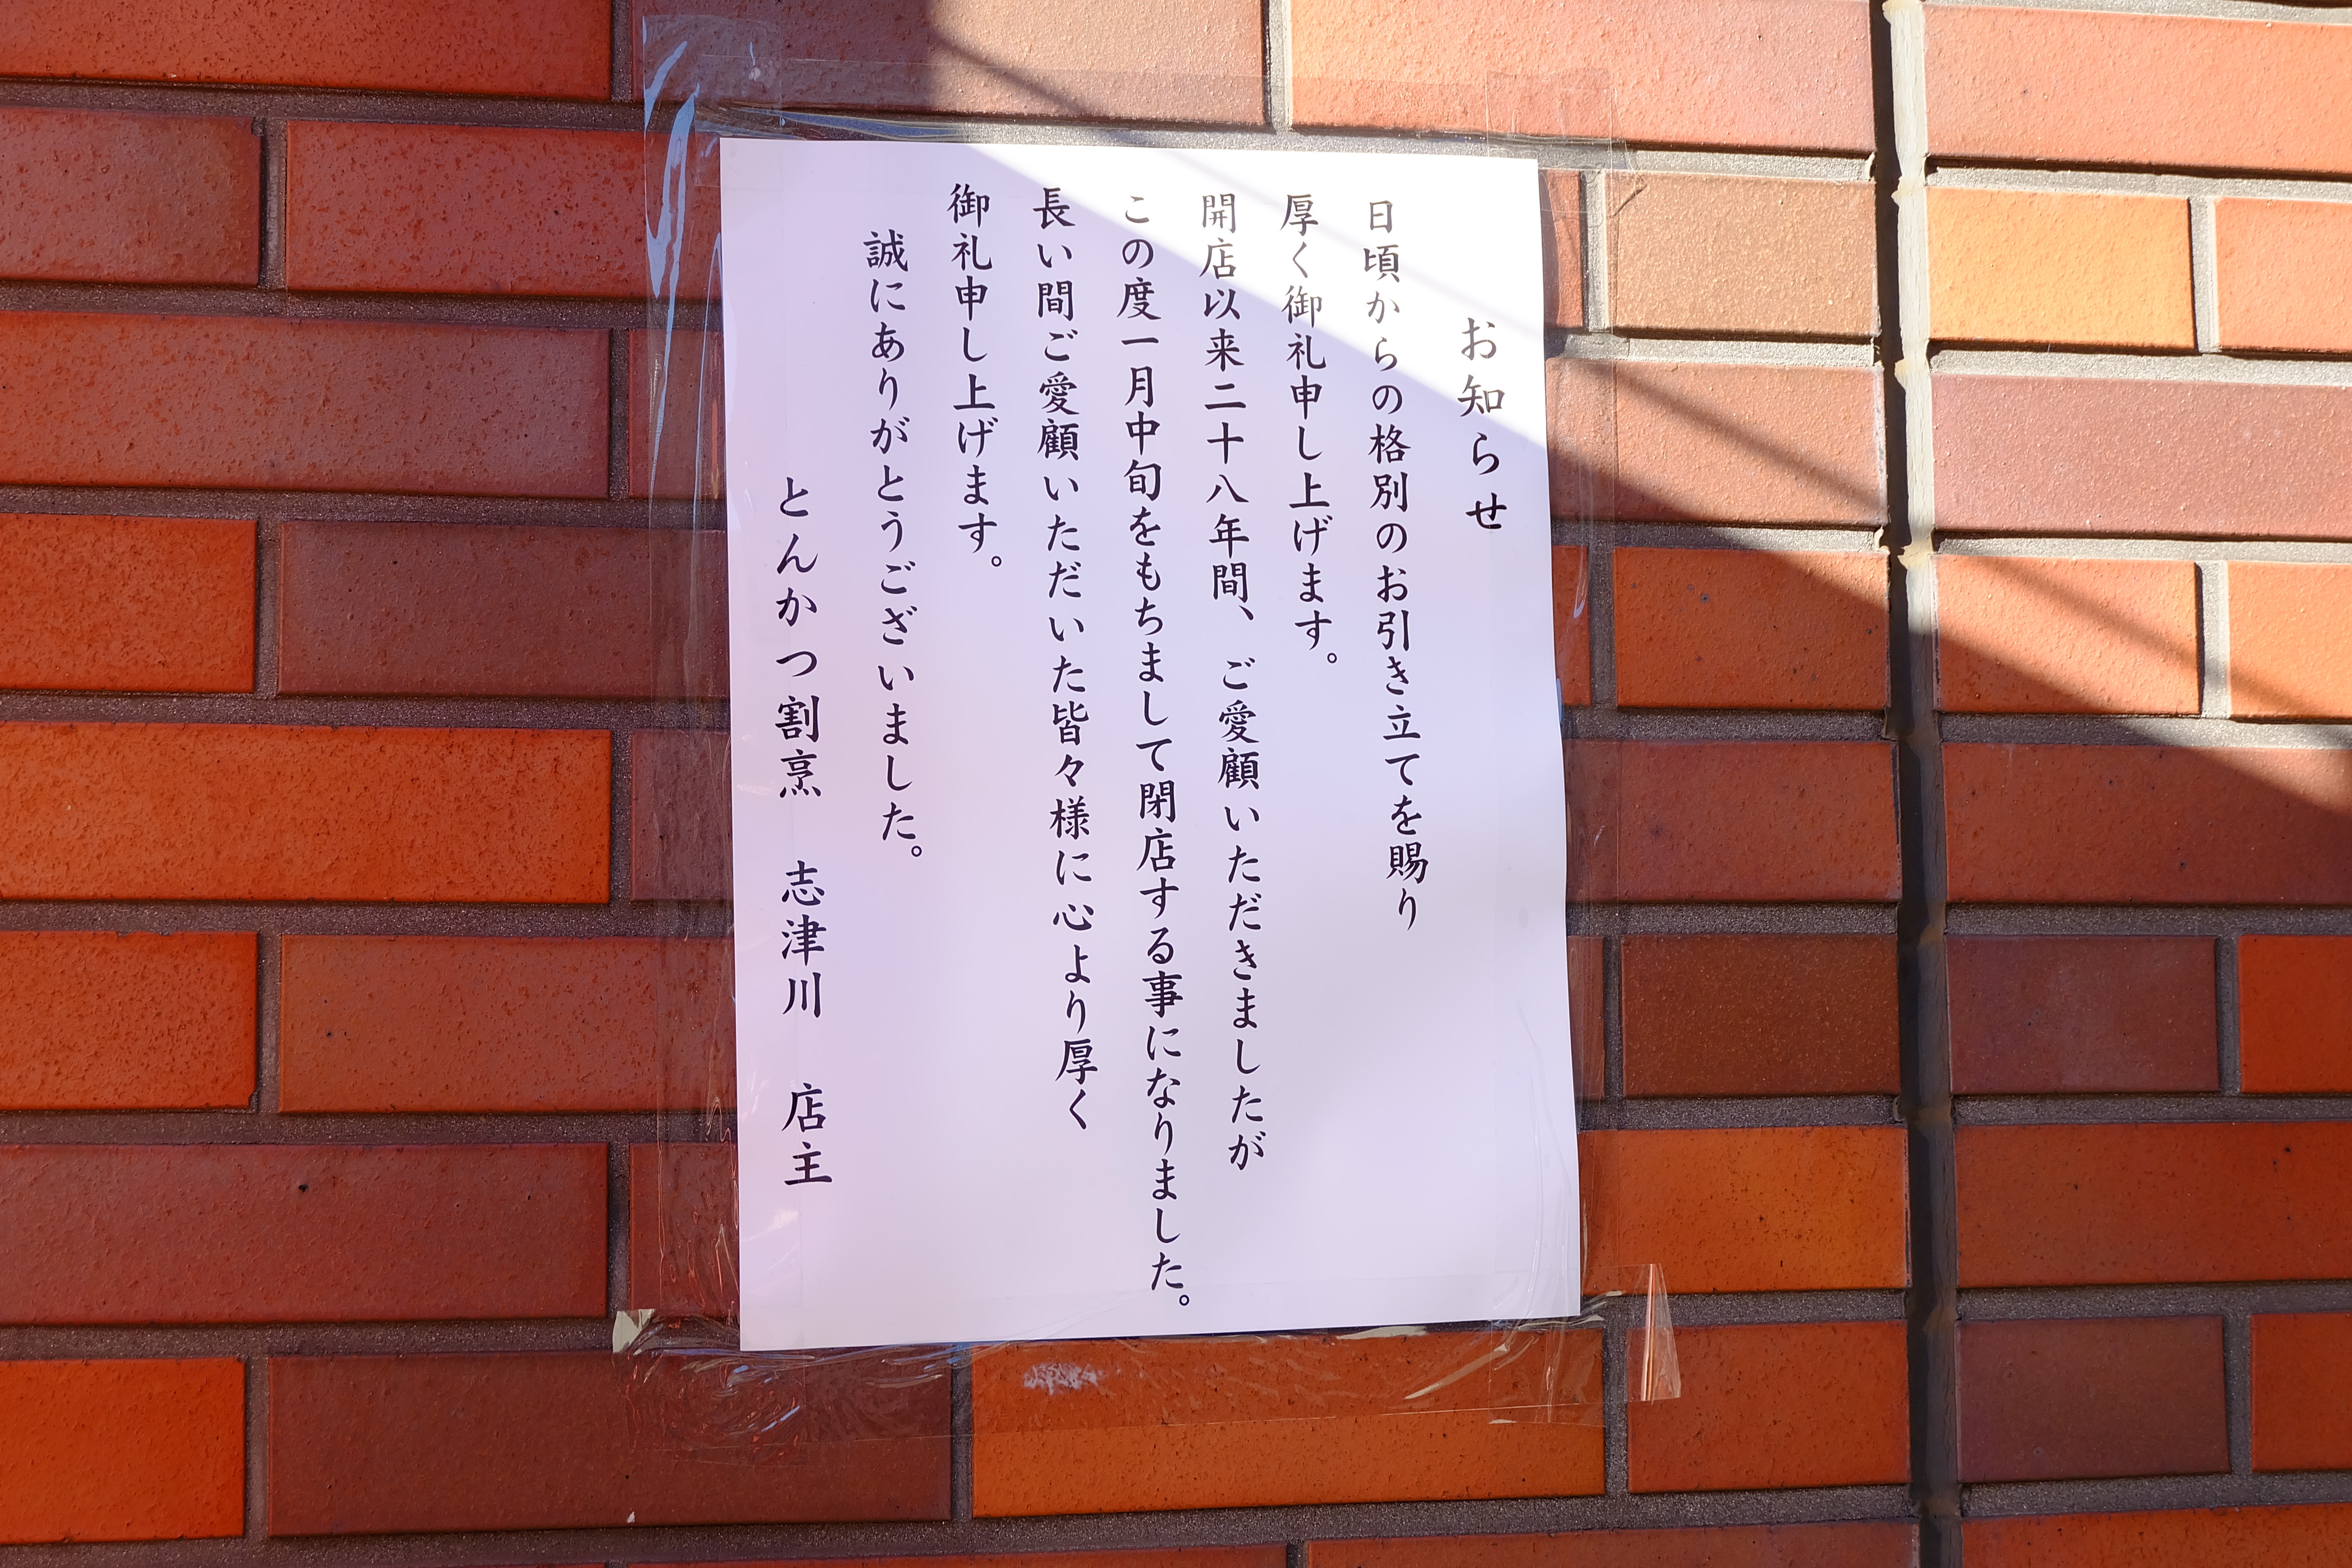 お知らせ
日頃からの格別のお引き立てを賜り
厚く御礼申し上げます。
開店以来二十八年間、ご愛顧いただきましたが
この度一月中旬をもちまして閉店する事になりました。
長い間ご愛顧いただいた皆々様に心より厚く
御礼申し上げます。
誠にありがとうございました。
とんかつ割烹　志津川　店主